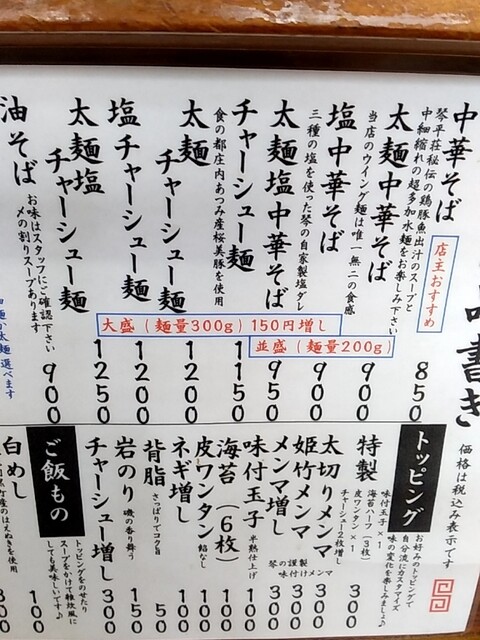 書き
価格は税込み表示です
中華そば
琴平荘秘伝の鶏豚魚出汁のスープと
中細縮れの超多加水麺をお楽しみ下さい
店主おすすめ
850
太麺中華そば
当店のウイング麺は唯一無二の食感
900
塩中華そば
三種の塩を使った琴の自家製塩ダレ
900
太麺塩中華そば
950
チャーシュー麺
食の都庄内あつみ産桜美豚を使用
1150
太麺チャーシュー麺
1200
塩チャーシュー麺
1200
太麺塩チャーシュー麺
1250
油そば
お味はスタッフにご確認下さい
〆の割りスープあります
900
大盛(麺量300g)150円増し
並盛(麺量200g)
トッピング
お好みのトッピングで
自分流にカスタマイズ
味の変化を楽しみましょ♪
特製
味付玉子×1
海苔ハーフ(3枚)
皮ワンタン×1
チャーシュー2枚増し
300
太切りメンマ
300
姫竹メンマ
300
メンマ増し
琴の謹製
味付けメンマ
300
味付玉子
半熟仕上げ
100
海苔(6枚)
100
皮ワンタン
餡なし
100
ネギ増し
100
背脂
さっぱりでコク旨
50
岩のり
磯の香り舞う
150
チャーシュー増し
300
ご飯もの
トッピングをのせたり
スープをかけて雑炊風に
しても美味しいです♪
100
白めし
産のはえぬきを使用